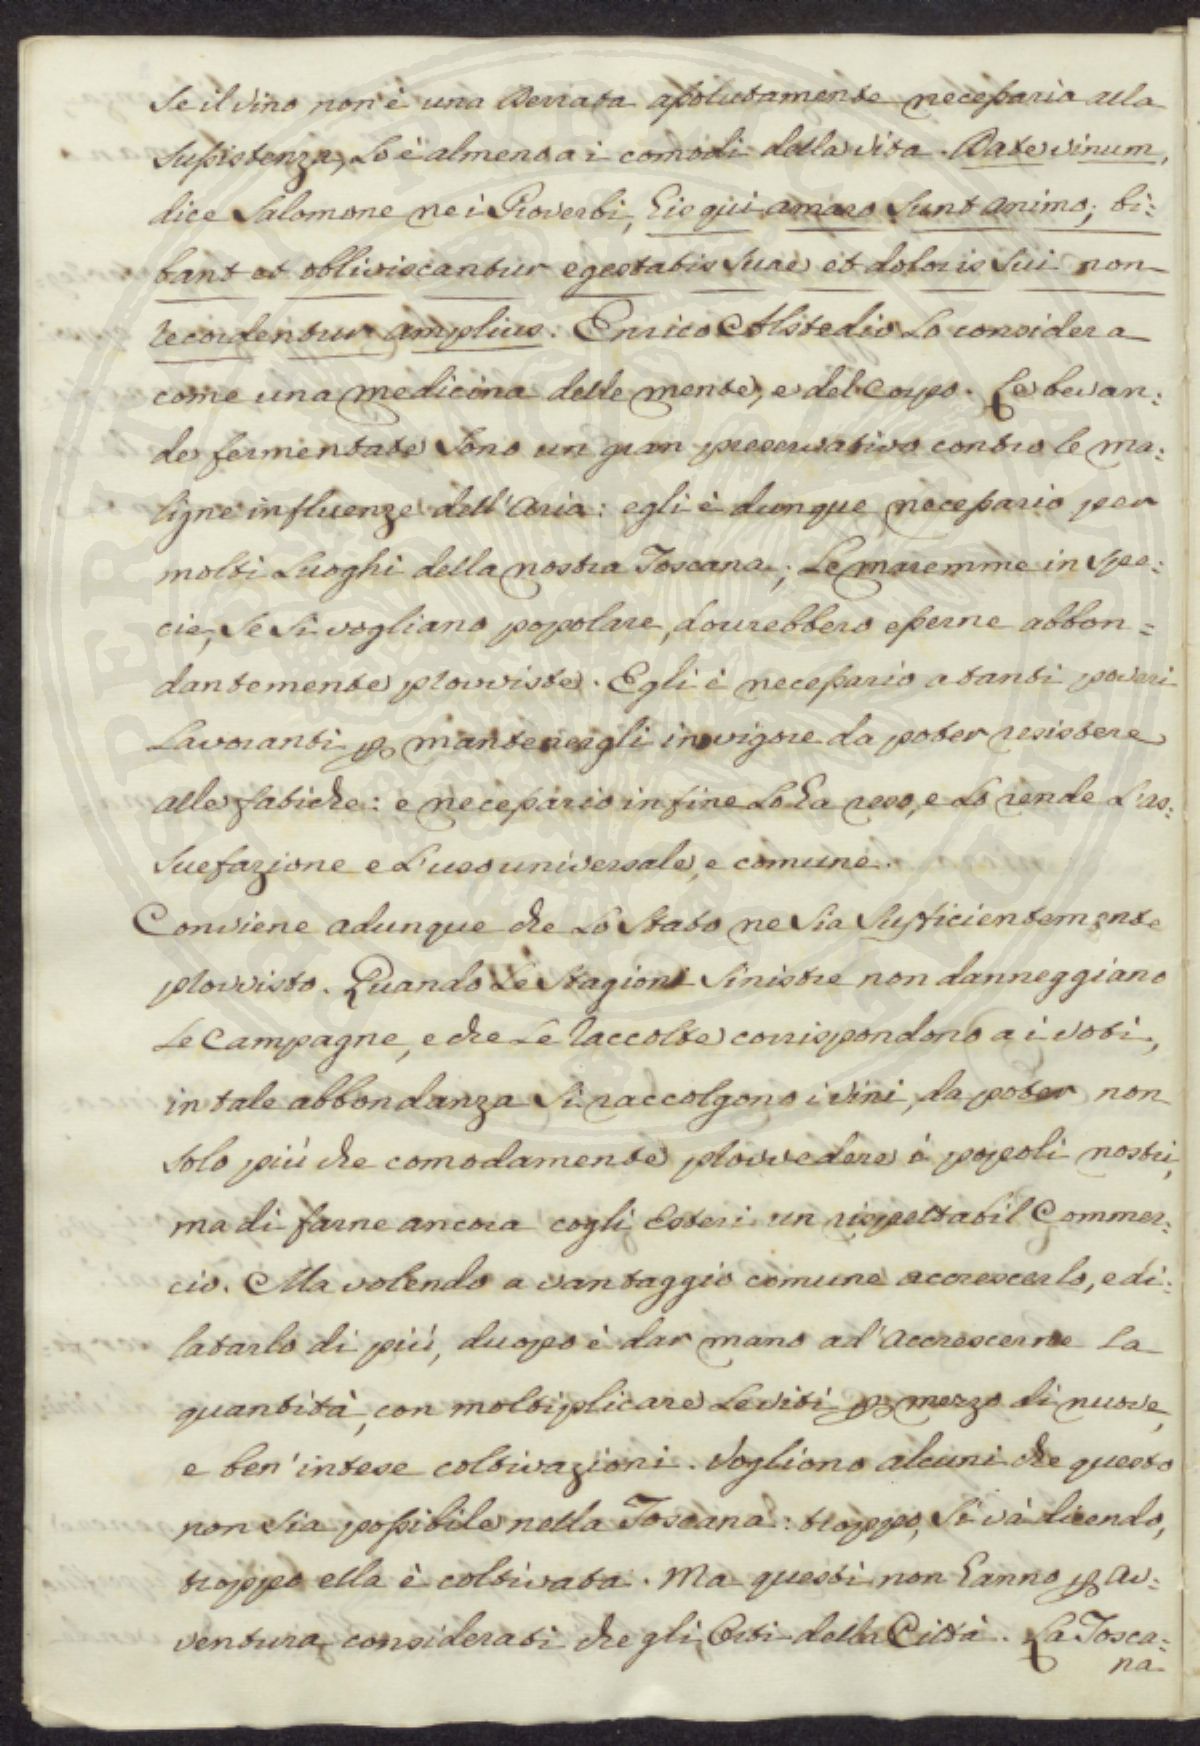 Se il vino non è una Derrata assolutamente necessaria alla
Sussistenza, Lo è almeno a i comodi della vita. Date vinum,
dice Salomone ne i Proverbi, his qui amaro Sunt animo; bi=
bant et obliviscantur egestatis Suae et doloris Sui non
recordentur amplius. Enrico Alstedio Lo considera
come una medicina delle mente, e del Corpo. Le bevan=
de fermentate Sono un gran preservativo contro le ma=
ligne influenze dell'Aria: egli è dunque necessario per
molti Luoghi della nostra Toscana; Le maremme in Spe=
cie, Se Si vogliano popolare, dovrebbero esserne abbon=
dantemente provviste. Egli è necessario a tanti poveri
Lavoranti p mantenergli in vigore da poter resistere
alle fatiche: e necessario in fine Lo ha reso, e Lo rende L'as=
Suefazione e L'uso universale, e comune.
Conviene adunque che Lo Stato ne Sia Sufficientemente
provvisto. Quando Le Stagioni Sinistre non danneggiano
Le Campagne, e che Le Raccolte corrispondono a i voti,
in tale abbondanza Si raccolgono i vini, da poter non
Solo più che comodamente provvedere i popoli nostri,
ma di farne ancora cogli Esteri un rispettabil Commer=
cio. Ma volendo a vantaggio comune accrescerlo, e di=
latarlo di più, duopo è dar mano ad' Accrescerne La
quantità, con moltiplicare Le viti p mezzo di nuove,
e ben' intese coltivazioni. Vogliono alcuni che questo
non Sia possibile nella Toscana: troppo, Si và dicendo,
troppo ella è coltivata. Ma questi non hanno p av=
ventura considerati che gli Orti della Città. La Tosca=
na